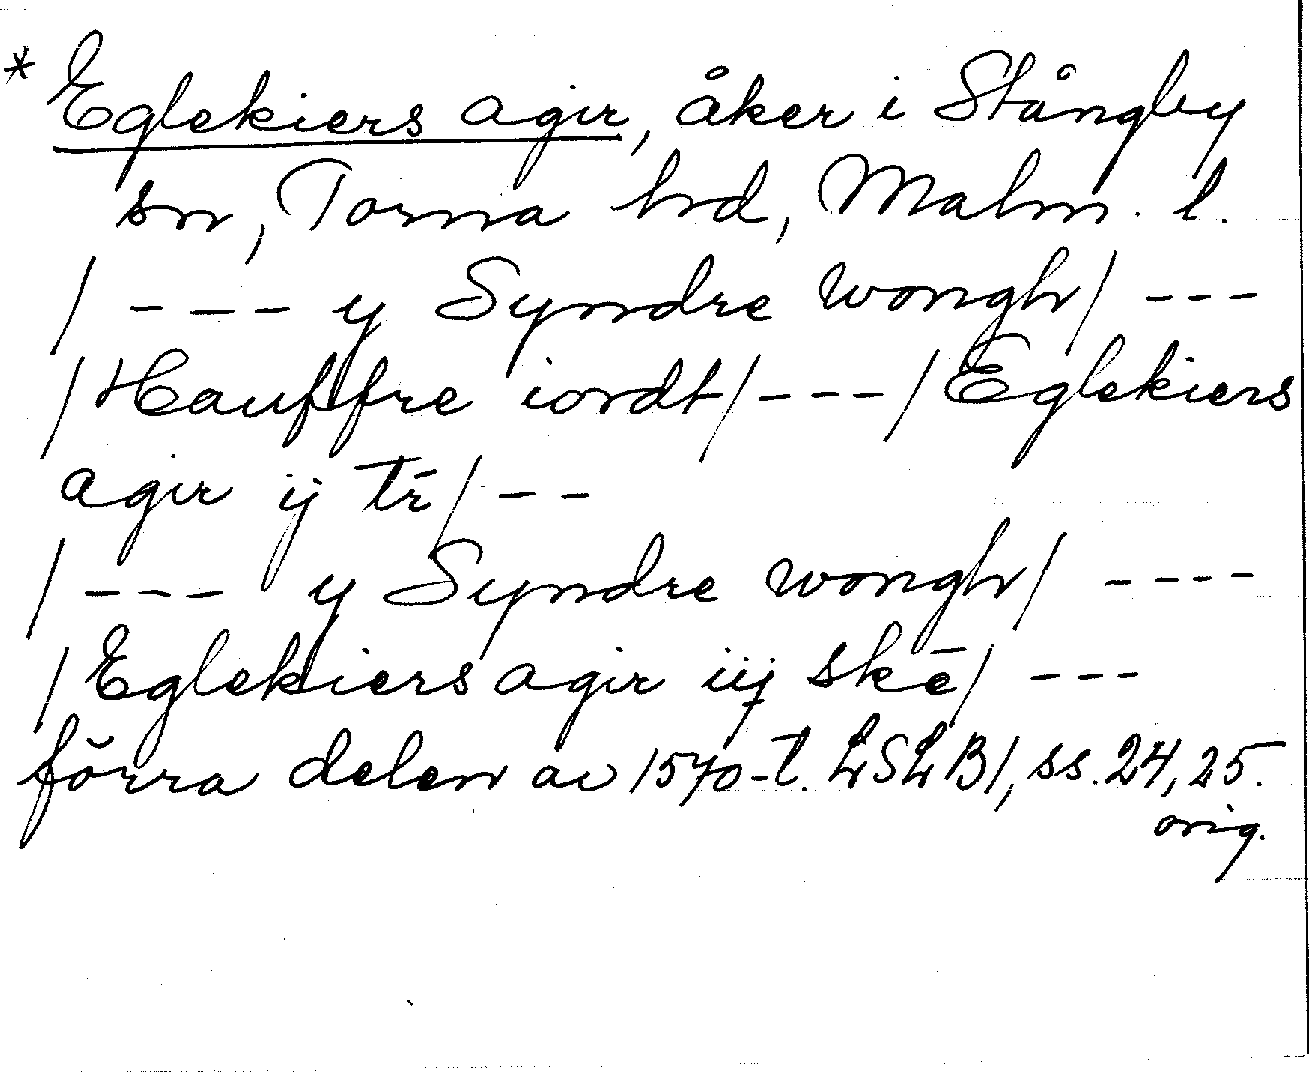 * Eglekiers agir, åker i Stångby
sn, Torna hd, Malm. l.
/ --- y Syndre wongh/ ---
/Hauffre iordt/---/Eglekiers
agir ij tr̄/ --
/ --- y Syndre wongh/ ----
/Eglekiers agir iij skē/ ---
förra delen av 1570-t. LSLB1, ss. 24, 25.
orig.